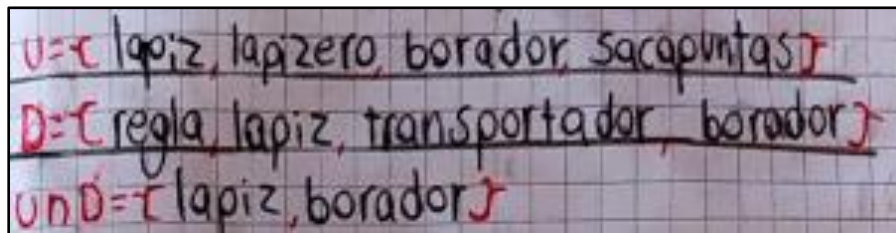 U={ lapiz, lapizero, borador, sacapuntas}
D={ regla, lapiz, transportador, borador}
UnD={ lapiz, borador}